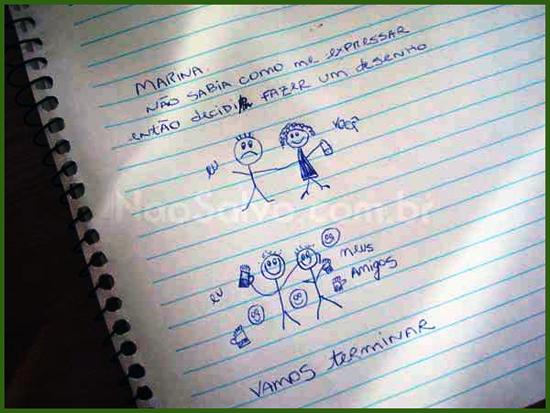 MARINA.
NÃO SABIA COMO ME EXPRESSAR
ENTÃO DECIDI FAZER UM DESENHO
EU
VOCÊ
NãoSalvo.com.br
EU
MEUS
AMIGOS
VAMOS TERMINAR